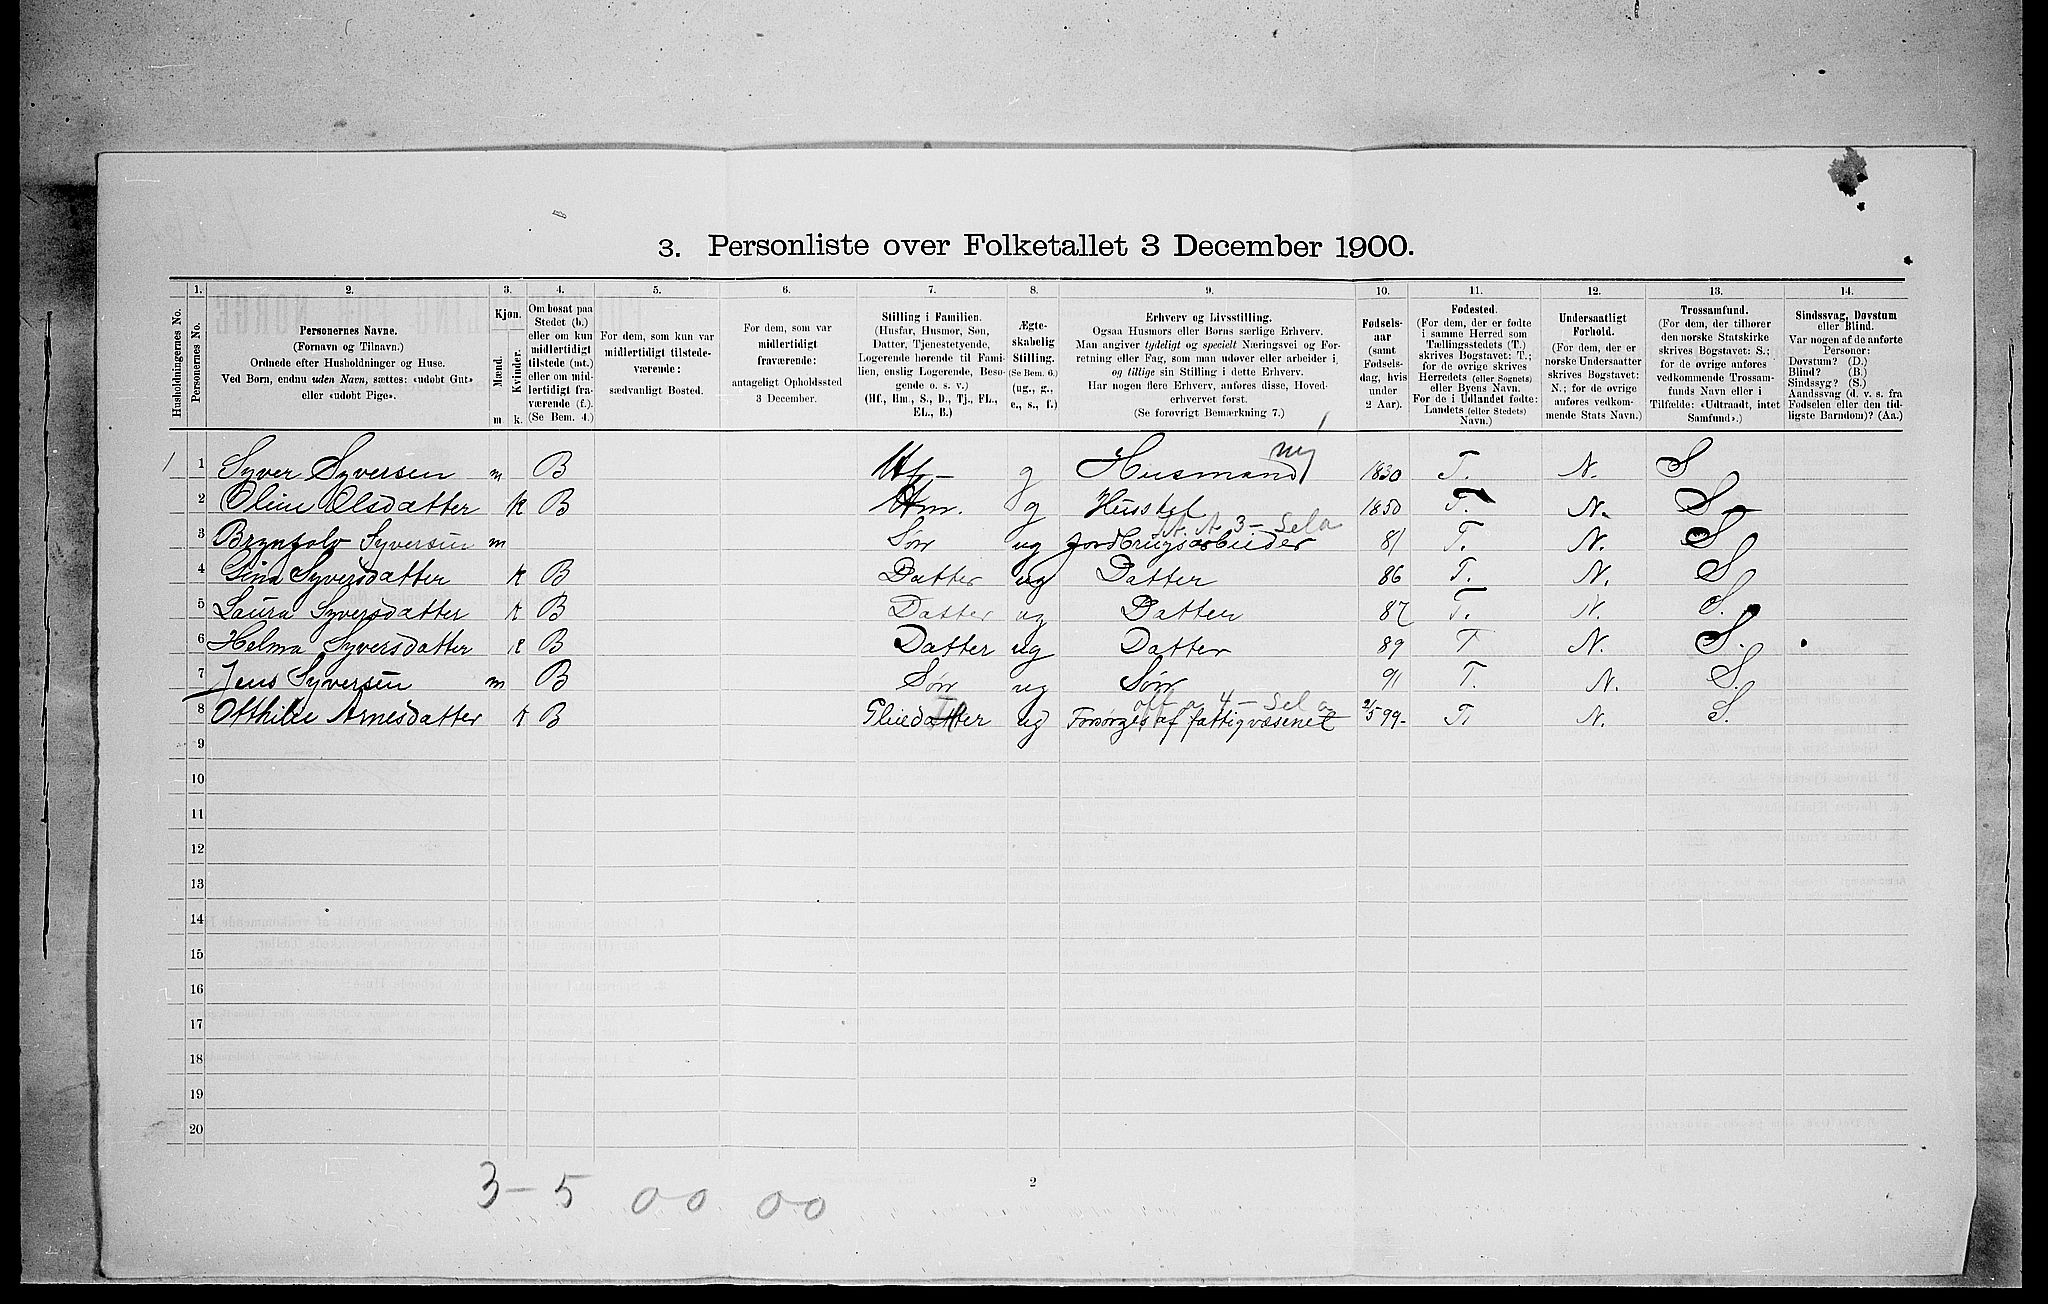 3. Personliste over Folketallet 3 December 1900.
Husholdningernes No.
1. Personernes No.
2. Personernes Navne.
(Fornavn og Tilnavn.)
Ordnede efter Husholdninger og Huse.
Ved Børn, endnu uden Navn, sættes: «udøbt Gut»
eller «udøbt Pige».
3. Kjøn.
Mænd. Kvinder.
m k.
4. Om bosat paa
Stedet (b.)
eller om kun
midlertidigt
tilstede (mt.)
eller om mid-
lertidigt fra-
værende (f.).
(Se Bem. 4.)
5. For dem, som kun var
midlertidigt tilstede-
værende:
sædvanligt Bosted.
6. For dem, som var
midlertidigt
fraværende:
antageligt Opholdssted
3 December.
7. Stilling i Familien.
(Husfar, Husmor, Søn,
Datter, Tjenestetyende,
Logerende hørende til Fami-
lien, enslig Logerende, Besø-
gende o. s. v.)
(Hf., Hm., S., D., Tj., FL.,
EL., B.)
8. Ægte-
skabelig
Stilling.
(Se Bem. 6.)
(ug., g.,
e., s., f.)
9. Erhverv og Livsstilling.
Ogsaa Husmors eller Børns særlige Erhverv.
Man angiver tydeligt og specielt Næringsvei og For-
retning eller Fag, som man udøver eller arbeider i,
og tillige sin Stilling i dette Erhverv.
Har nogen flere Erhverv, anføres disse, Hoved-
erhvervet først.
(Se forøvrigt Bemærkning 7.)
10. Fødsels-
aar
(samt
Fødsels-
dag, hvis
under
2 Aar).
11. Fødested.
(For dem, der er fødte
i samme Herred som
Tællingsstedets (T.)
skrives Bogstavet: T.;
for de øvrige skrives
Herredets (eller Sognets)
eller Byens Navn.
For de i Udlandet fødte:
Landets (eller Stedets)
Navn.)
12. Undersaatligt
Forhold.
(For dem, der er
norske Undersaatter
skrives Bogstavet:
N.; for de øvrige
anføres vedkom-
mende Stats Navn.)
13. Trossamfund.
(For dem, der tilhører
den norske Statskirke
skrives Bogstavet: S.;
for de øvrige anføres
vedkommende Trossam-
funds Navn eller i
Tilfælde: «Udtraadt, intet
Samfund».)
14. Sindssvag, Døvstum
eller Blind.
Var nogen af de anførte
Personer:
Døvstum? (D.)
Blind? (B.)
Sindssyg? (S.)
Aandssvag (d. v. s. fra
Fødselen eller den tid-
ligste Barndom)? (Aa.)
1 1 Syver Syversen m B Hf g Husmand 1830 T. N. S
2 Oline Olsdatter k B Hm. g Husstel 1850 T. N. S
3 Brynjolv Syversen m Søn ug Jordbrugsarbeider 81 T. N. S
4 Gina Syversdatter k B Datter ug Datter 86 T. N. S
5 Laura Syversdatter k B Datter ug Datter 87 T. N. S.
6 Helma Syversdatter k B Datter ug Datter 89 T N. S.
7 Jens Syversen m B Søn ug Søn 91 T. N. S.
8 Otthilie Arnesdatter k B Pleiedatter ug Forsørges af fattigvæsenet 2/5 99 T. N. S.
9
10
11
12
13
14
15
16
17
18
19
20
3-5 00 00
2